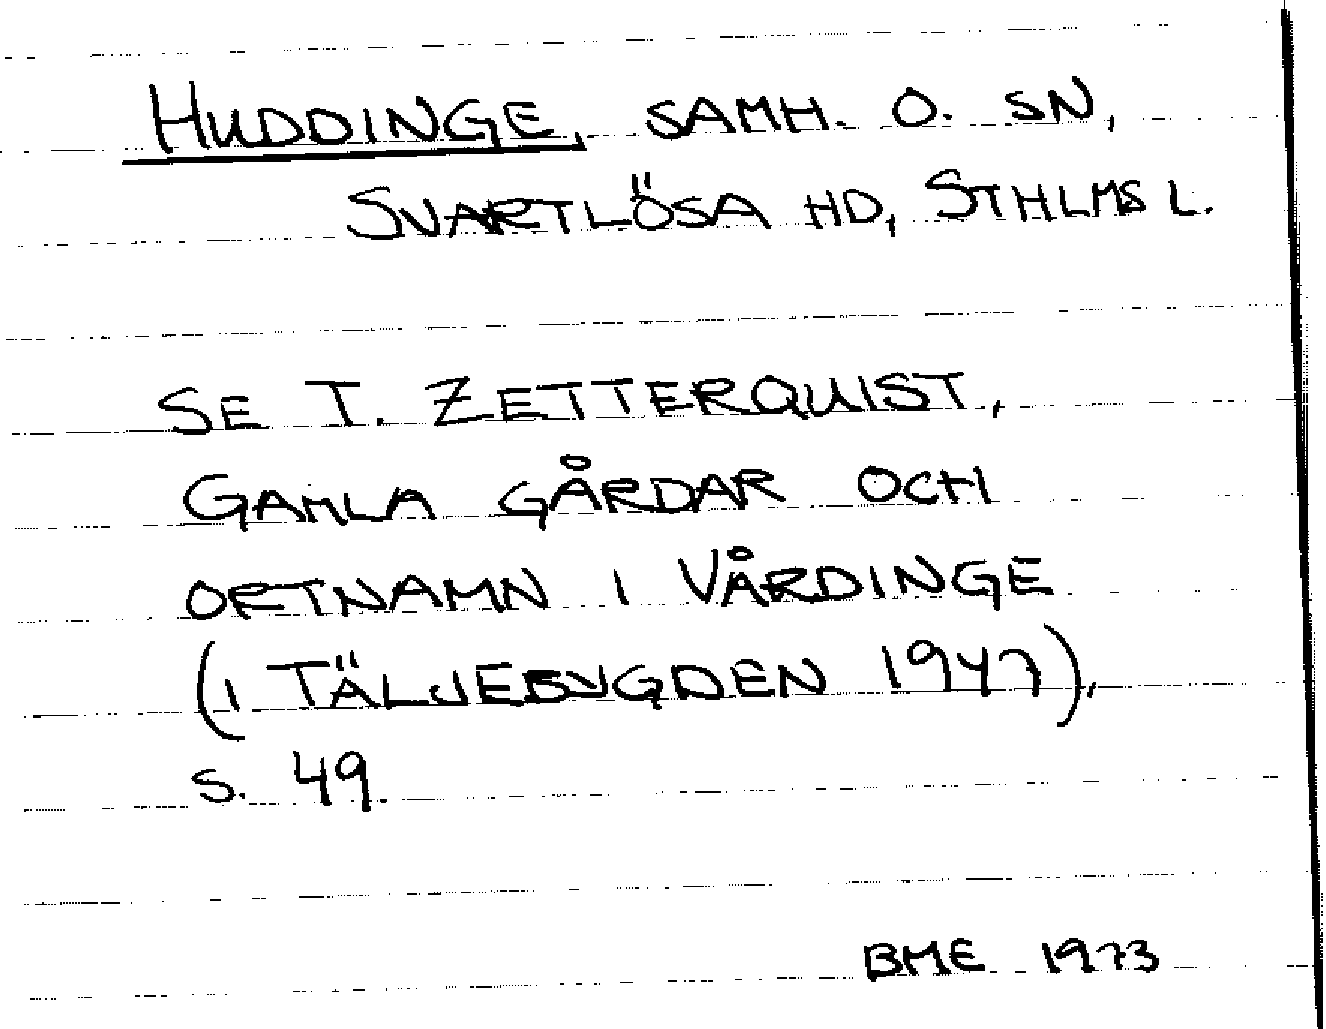 HUDDINGE, SAMH. O. SN,
SVARTLÖSA HD, STHLMS L.
SE T. ZETTERQUIST,
GAMLA GÅRDAR OCH
ORTNAMN I VÅRDINGE
(I TÄLJEBYGDEN 1947),
S. 49.
BME 1973